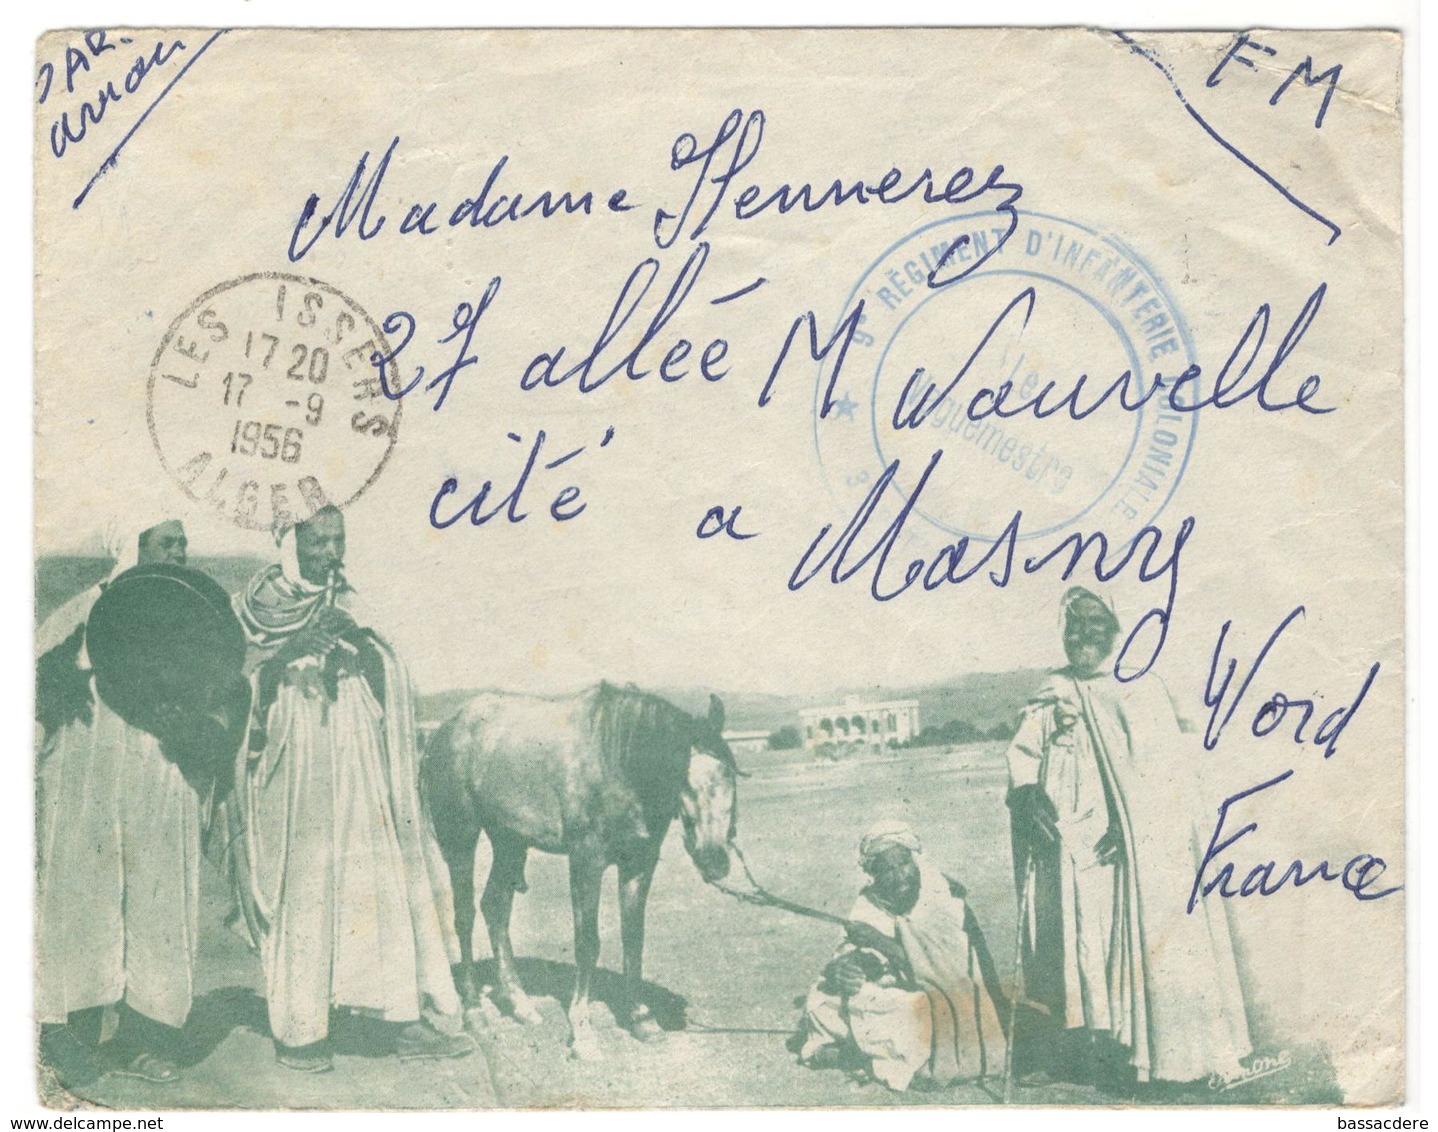 PAR
avion
FM
Madame Hennerez
27 allée M Nouvelle
cité a Masny
Nord
France
LES ISSERS
17 20
17 -9
1956
ALGER
9e RÉGIMENT D'INFANTERIE COLONIALE
Le
Vaguemestre
www.delcampe.net
bassacdere